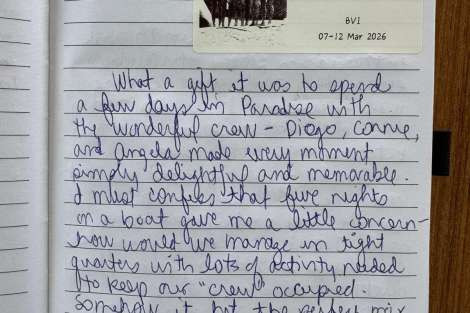 BVI
07-12 Mar 2026
What a gift it was to spend
a few days in Paradise with
the wonderful crew - Diogo, Connie,
and Angela made every moment
simply delightful and memorable.
I must confess that five nights
on a boat gave me a little concern -
how would we manage in tight
quarters with lots of activity needed
to keep our "crew" occupied.
Somehow it hit the perfect mix